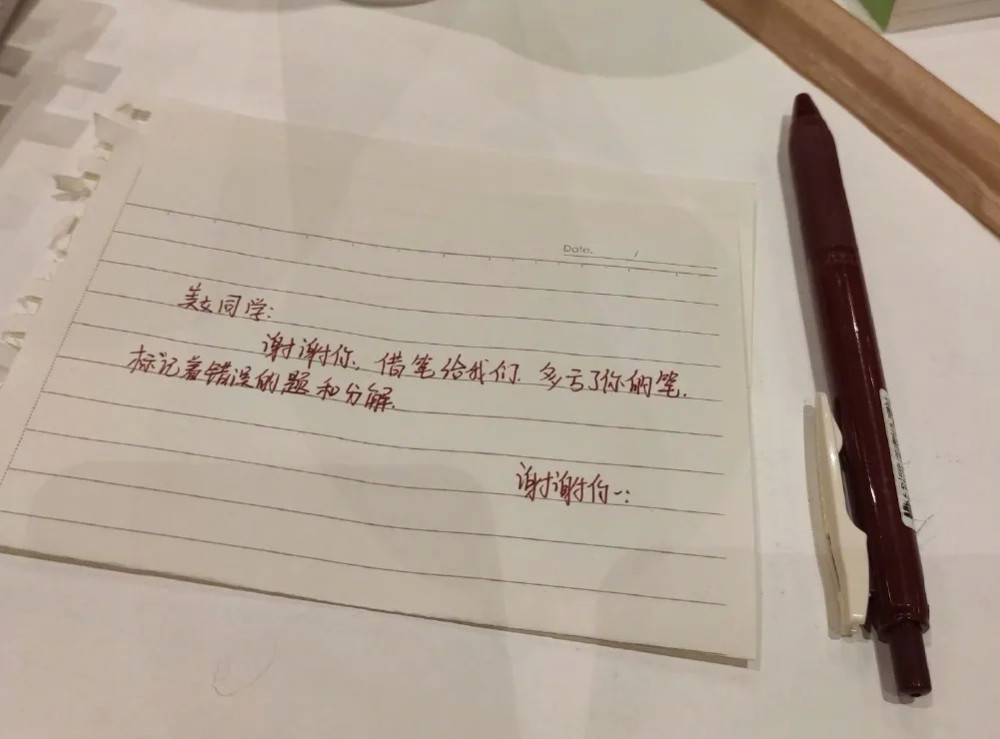 Date. /
美女同学:
谢谢你,借笔给我们.多亏了你的笔.
标记着错误的题和分解.
谢谢你~: